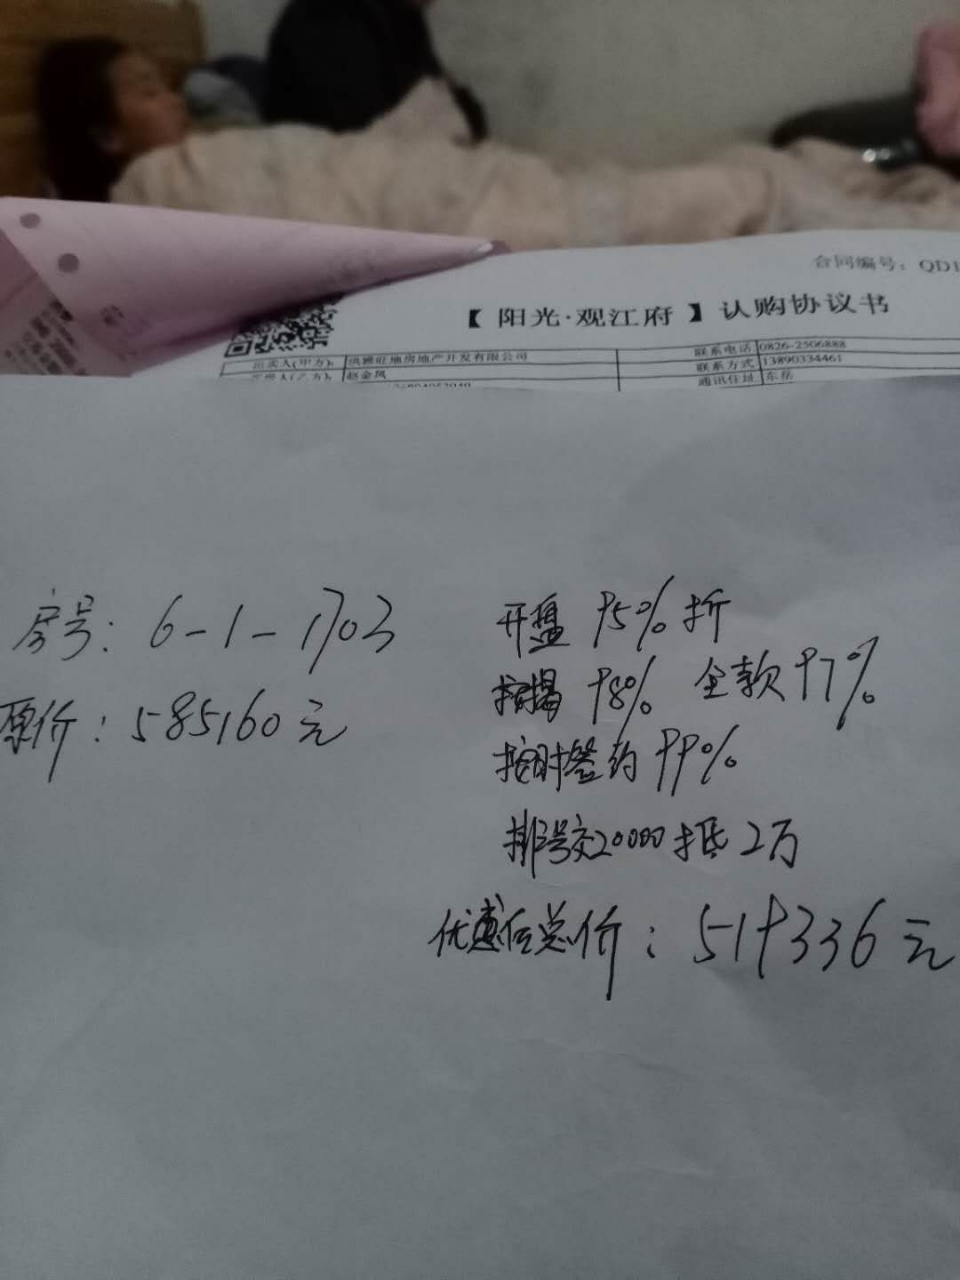 合同编号：QD1
【阳光·观江府】认购协议书
出卖人(甲方)： 洪雅旺地房地产开发有限公司 联系电话 0826-2506888
买受人(乙方)： 赵金凤 联系方式 13890334461
通讯住址 东岳
房号：6-1-1703
原价：585160元
开盘 95%折
按揭 98% 全款97%
按时签约 99%
排号交20000抵2万
优惠后总价：519336元